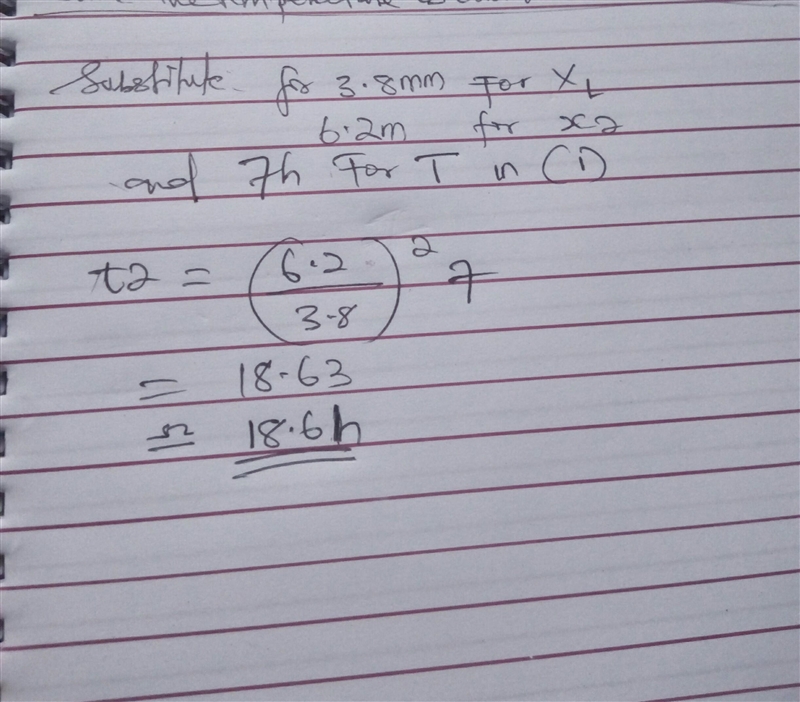 Substitute for 3.8mm For X1
6.2m for x2
and 7h For T in (1)
t2 = (6.2/3.8)^2 7
= 18.63
≈ 18.6h